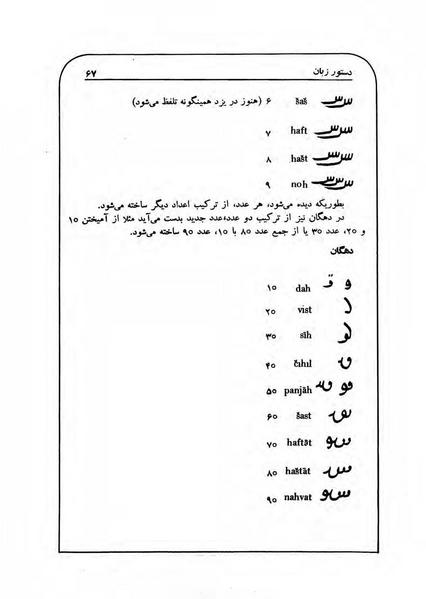 دستور زبان ۶۷
šaš ۶ (هنوز در یزد همینگونه تلفظ می‌شود)
haft ۷
hašt ۸
noh ۹
بطوریکه دیده می‌شود، هر عدد، از ترکیب اعداد دیگر ساخته می‌شود.
در دهگان نیز از ترکیب دو عدد،عدد جدید بدست می‌آید مثلا از آمیختن ۱۰
و ۲۰، عدد ۳۰ یا از جمع عدد ۸۰ با ۱۰، عدد ۹۰ ساخته می‌شود.
دهگان
dah ۱۰
vist ۲۰
sīh ۳۰
čihil ۴۰
panjāh ۵۰
šast ۶۰
۷۰
haštāt ۸۰
nahvat ۹۰